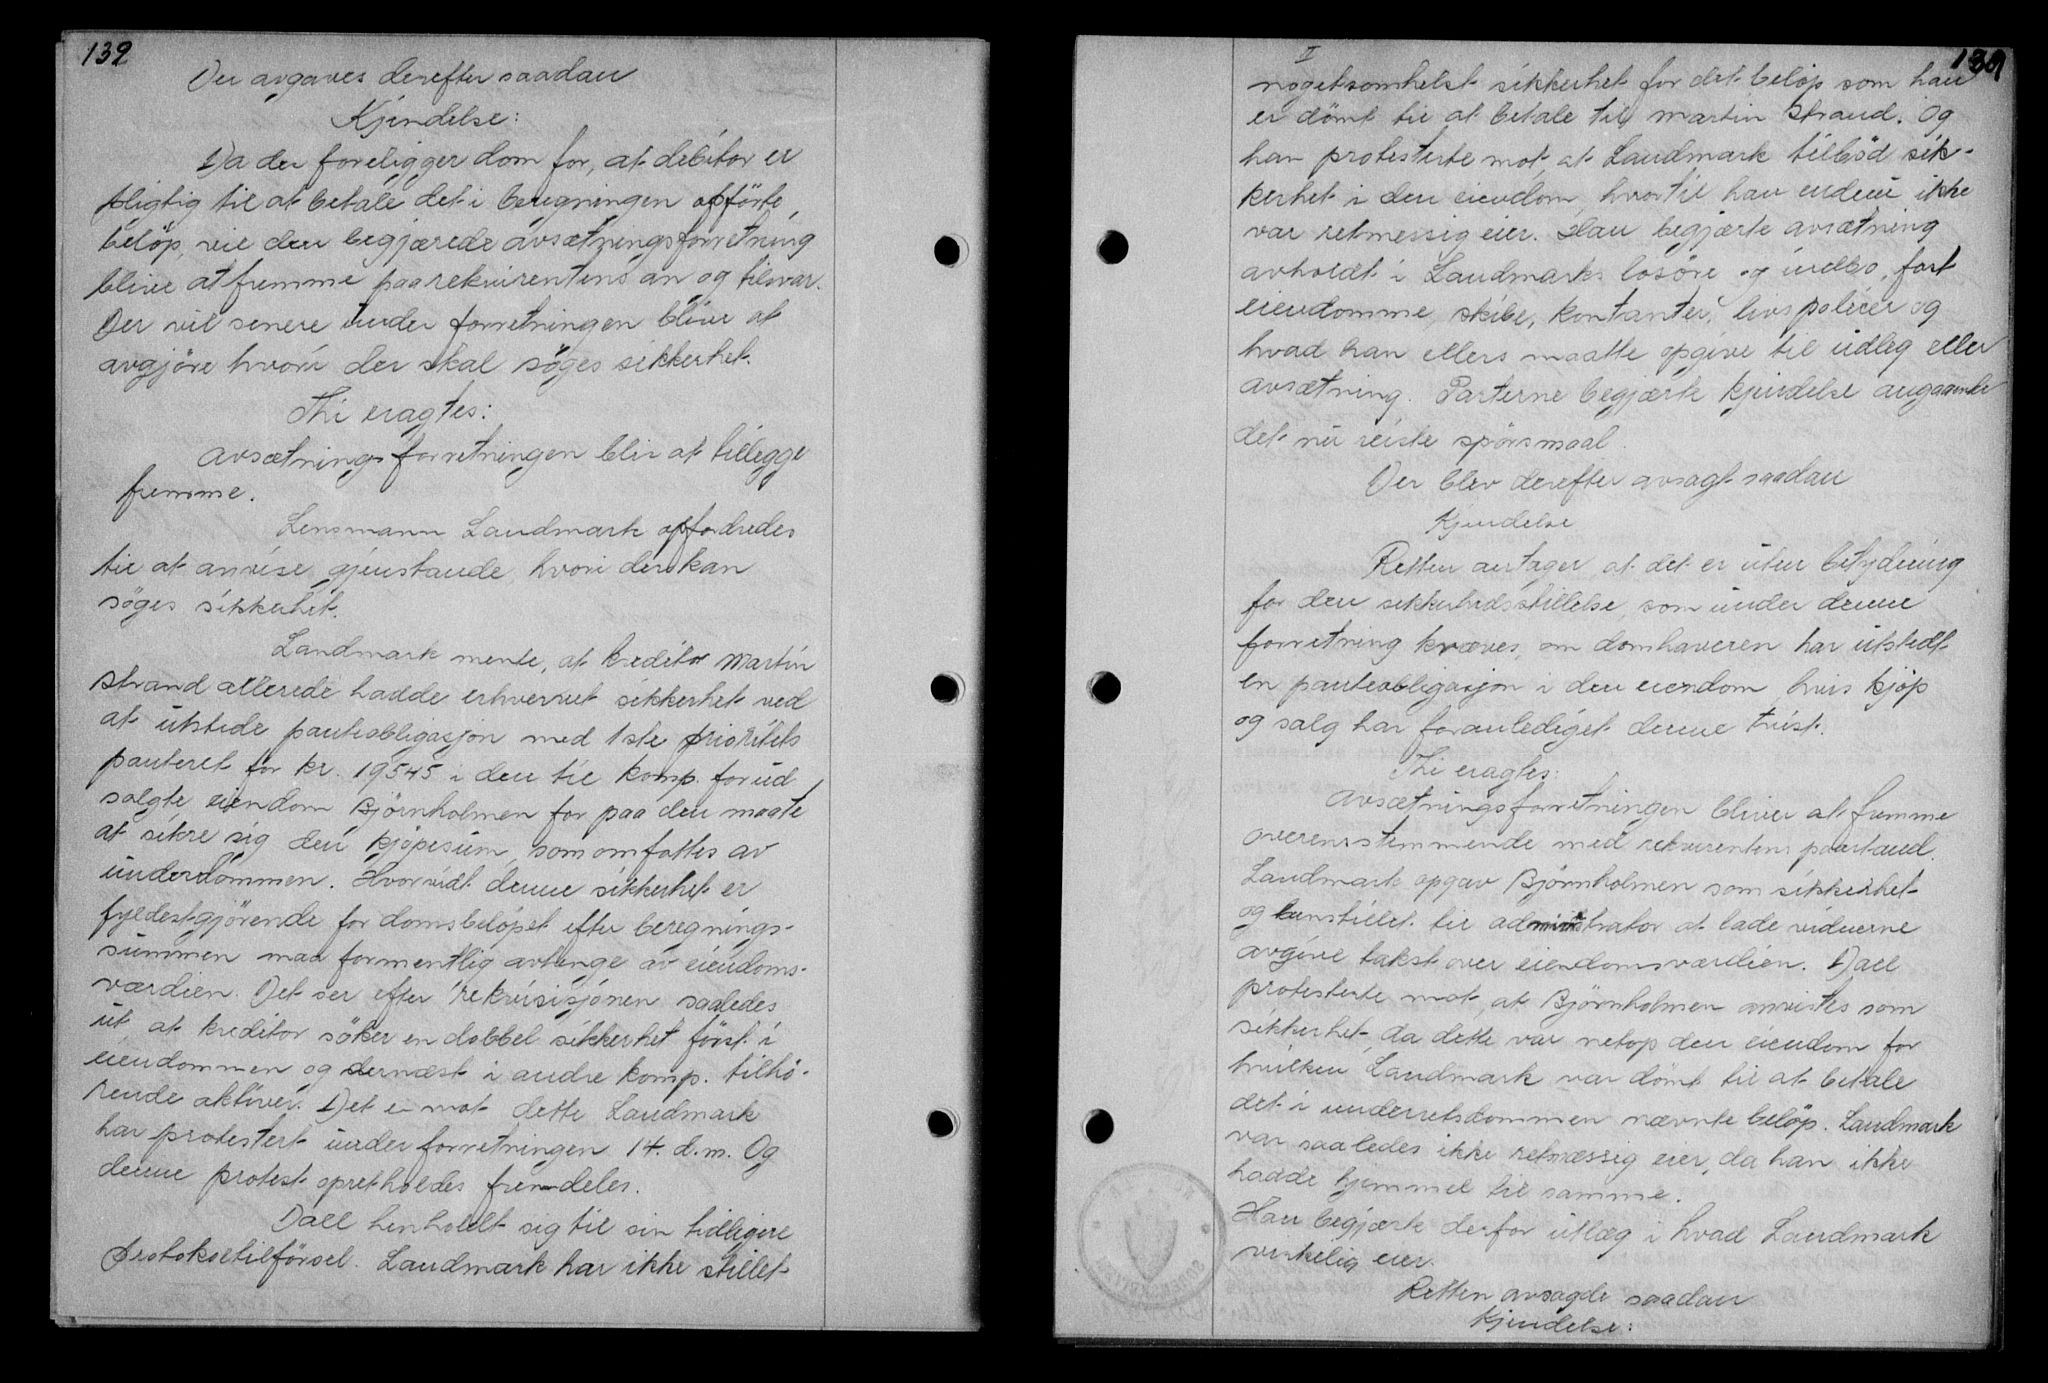 132
Der avgaves derefter saadan
Kjendelse:
Da der foreligger dom for, at debitor er
pligtig til at betale det i beregningen opförte
belöp, vil den begjærede avsætningsforretning
blive at fremme paa rekvirentens an og tilsvar.
Der vil senere under forretningen blive at
avgjöre hvori der skal söges sikkerhet.
Thi eragtes:
Avsætningsforretningen blir at tillegge
fremme.
Lensmann Landmark opfordredes
til at anvise gjenstande, hvori der kan
söges sikkerhet.
Landmark mente, at kreditor Martin
Strand allerede hadde erhvervet sikkerhet ved
at utstede panteobligasjon med 1ste prioritets
panteret for kr. 19545 i den til komp. forud
solgte eiendom Björnholmen for paa den maate
at sikre sig den kjöpesum, som omfattes av
underdommen. Hvorvidt denne sikkerhet er
fyldestgjörende for domsbelöpet efter beregnings-
summen maa formentlig avhenge av eiendoms-
værdien. Det ser efter rekvisisjonen saaledes
ut at kreditor söker en dobbel sikkerhet först i
eiendommen og dernæst i andre komp. tilhö-
rende aktiver. Det er mot dette Landmark
har protestert under forretningen 14. d.m. Og
denne protest opretholdes fremdeles.
Dall henholdt sig til sin tidligere
protokoltilförsel. Landmark har ikke stillet
II
139
nogetsomhelst sikkerhet for det belöp som han
er dömt til at betale til Martin Strand. Og
han protesterte mot, at Landmark tilböd sik-
kerhet i den eiendom, hvortil han endnu ikke
var retmessig eier. Han begjærte avsætning
avholdt i Landmarks lösöre og indbo, fast
eiendomme, skibe, kontanter, livspolicer og
hvad han ellers maatte opgive til udlæg eller
avsætning. Parterne begjærte kjendelse angaaende
det nu reiste spörsmaal.
Der blev derefter avsagt saadan
Kjendelse
Retten antager, at det er uten betydning
for den sikkerhedsstillelse, som under denne
forretning kræves, om domhaveren har utstedt
en panteobligasjon i den eiendom hvis kjöp
og salg har foranlediget denne tvist.
Thi eragtes:
Avsætningsforretningen bliver at fremme
overensstemmende med rekvirentens paastand.
Landmark opgav Björnholmen som sikkerhet
og henstillet til administrator at lade vidnerne
avgive takst over eiendomsværdien. Dall
protesterte mot, at Björnholmen anvistes som
sikkerhet, da dette var netop den eiendom for
hvilken Landmark var dömt til at betale
det i underretsdommen nævnte belöp. Landmark
var saaledes ikke retmæssig eier, da han ikke
hadde hjemmel til samme.
Han begjærte derfor utlæg i hvad Landmark
virkelig eier.
Retten avsagde saadan
Kjendelse: